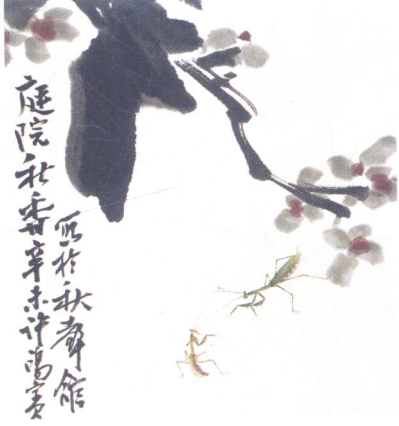 庭院秋香辛未许鸿宾
写于秋声馆